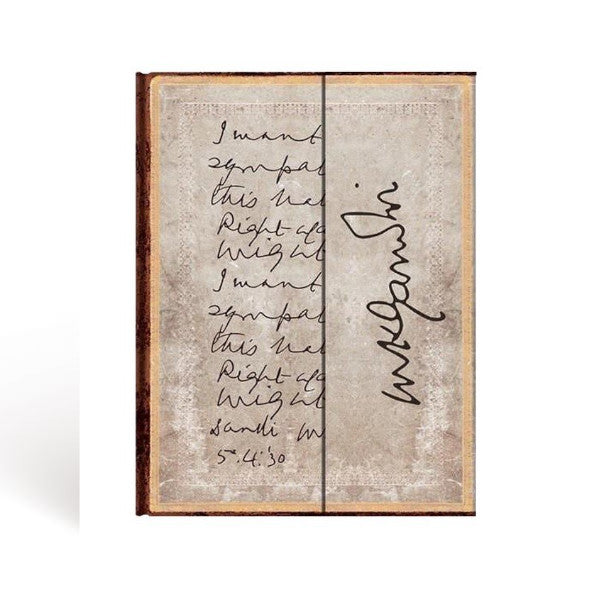 I want
sympat
this bat
Right aga
might
I want
sympat
this bat
Right aga
might
Dandi M
5.4.'30
MKGandhi